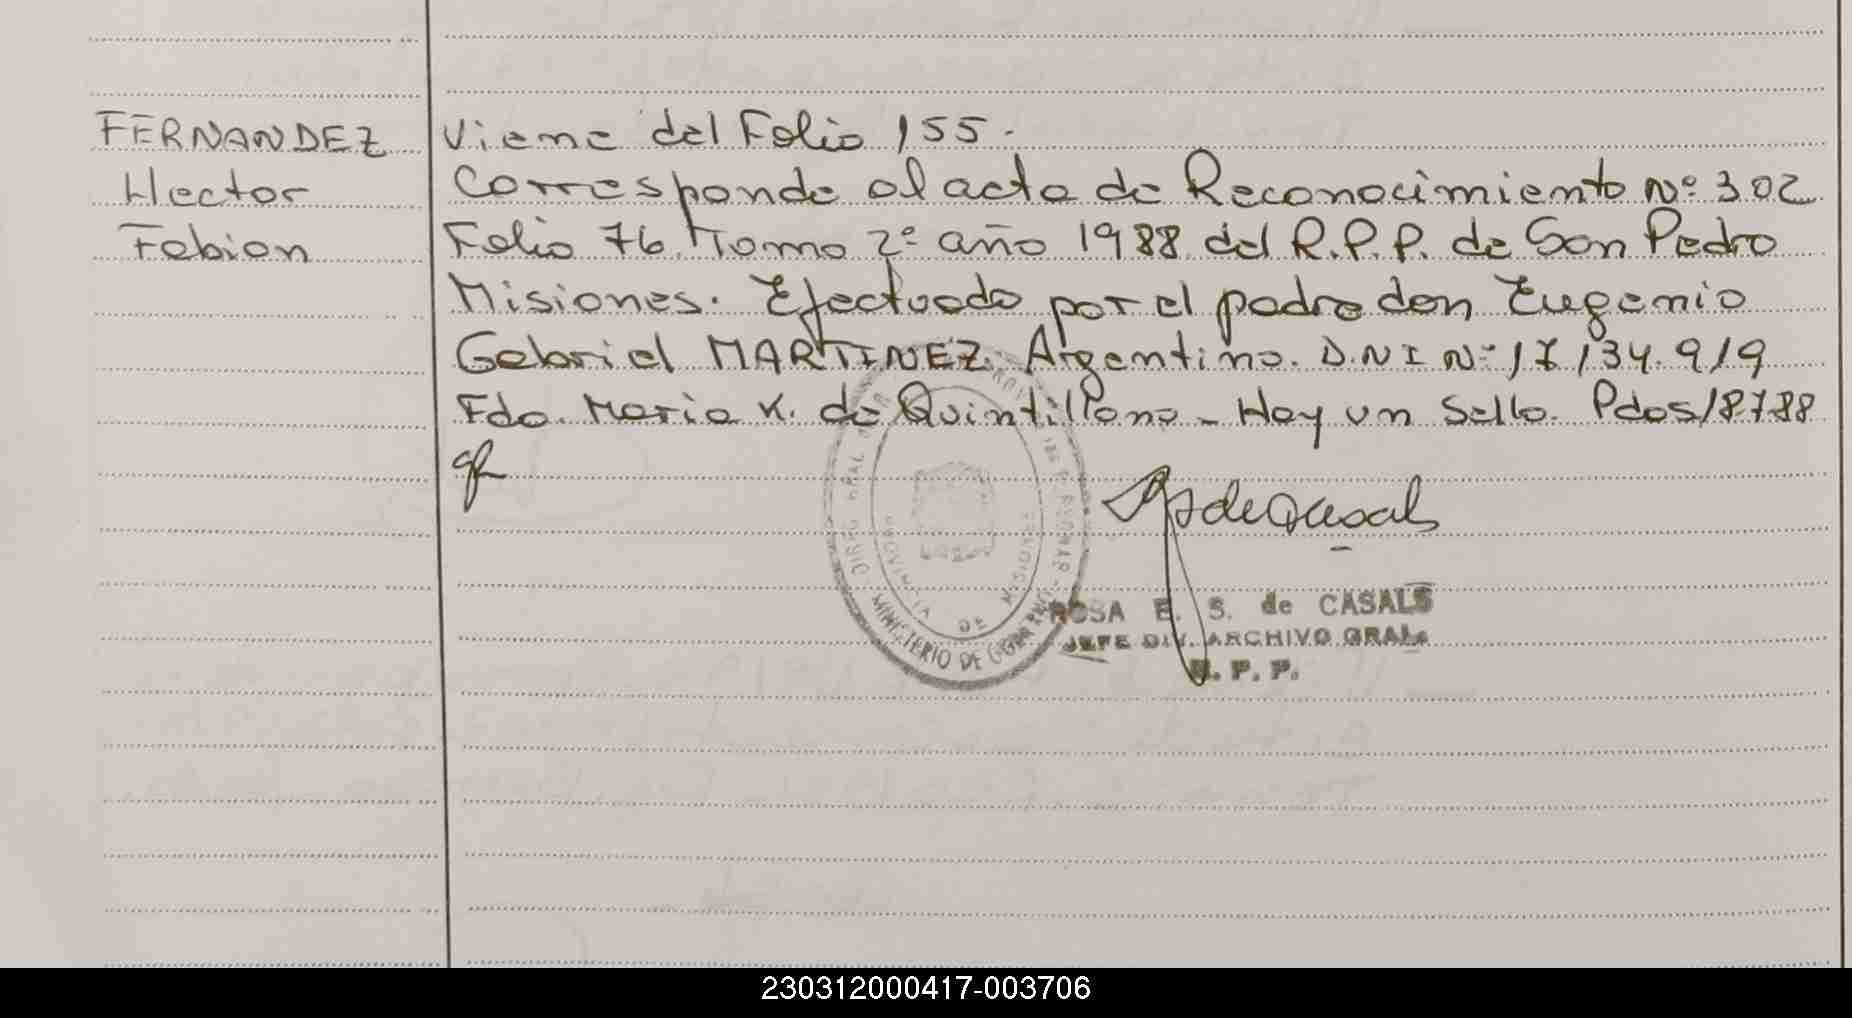 FERNANDEZ
Hector
Fabian
Viene del Folio 155.
Corresponde al acta de Reconocimiento Nº 302
Folio 76 Tomo 2º año 1988 del R.P.P. de San Pedro
Misiones. Efectuado por el padre don Eugenio
Gabriel MARTINEZ. Argentino. D.N.I Nº 17134.919
Fdo. Maria K. de Quintillana - Hay un Sello. Pdas/8788
PROVINCIA DE MISIONES
MINISTERIO DE GOBIERNO
ROSA E. S. de CASALS
JEFE DIV. ARCHIVO GRAL.
R. P. P.
230312000417-003706